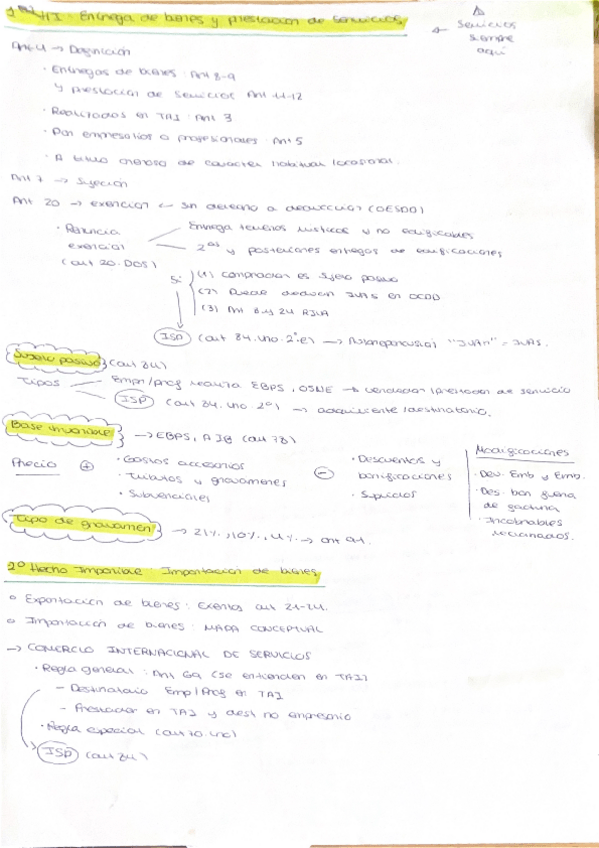 1er HI: Entrega de bienes y prestación de servicios
Servicios
siempre
aquí
Art 4 → Definición
· Entregas de bienes: Art 8-9
y prestación de servicios Art 11-12
· Realizadas en TAI: Art 3
· Por empresarios o profesionales: Art 5
· A título oneroso de carácter habitual/ocasional.
Art 7 → Sujeción
Art 20 → exención ← Sin derecho a deducción (OESDD)
· Renuncia
exención
(art 20.DOS)
Entrega terrenos rústicos y no edificables
2as y posteriores entregas de edificaciones
Si
(1) comprador es sujeto pasivo
(2) Puede deducir
(3) Art 8 y 24 RIVA
ISP (art 84.uno.2º.e) →
Sujeto pasivo (art 84)
Tipos
Empr/prof realiza EBPS, → vendedor/prestador de servicio
ISP (art 84.uno 2º) → adquirente/destinatario.
Base imponible → EBPS, AIB (art 78)
Precio
+
· Gastos accesorios
· Tributos y gravámenes
· Subvenciones
-
· Descuentos y
bonificaciones
· Suplidos
Modificaciones
· Dev. Env y Emb.
· Des. bon fuera
de factura
· Incobrables
Tipo de gravamen → 21%, 10%, 4% → art 91.
2º Hecho Imponible: Importación de bienes
Exportación de bienes: Exentos art 21-24.
Importación de bienes: MAPA CONCEPTUAL
→ COMERCIO INTERNACIONAL DE SERVICIOS
· Regla general: Art 69 (se entienden en TAI)
- Destinatario Emp/Prof en TAI
- Prestador en TAI y dest no empresario
· Regla especial (art 70.uno)
ISP (art 84)